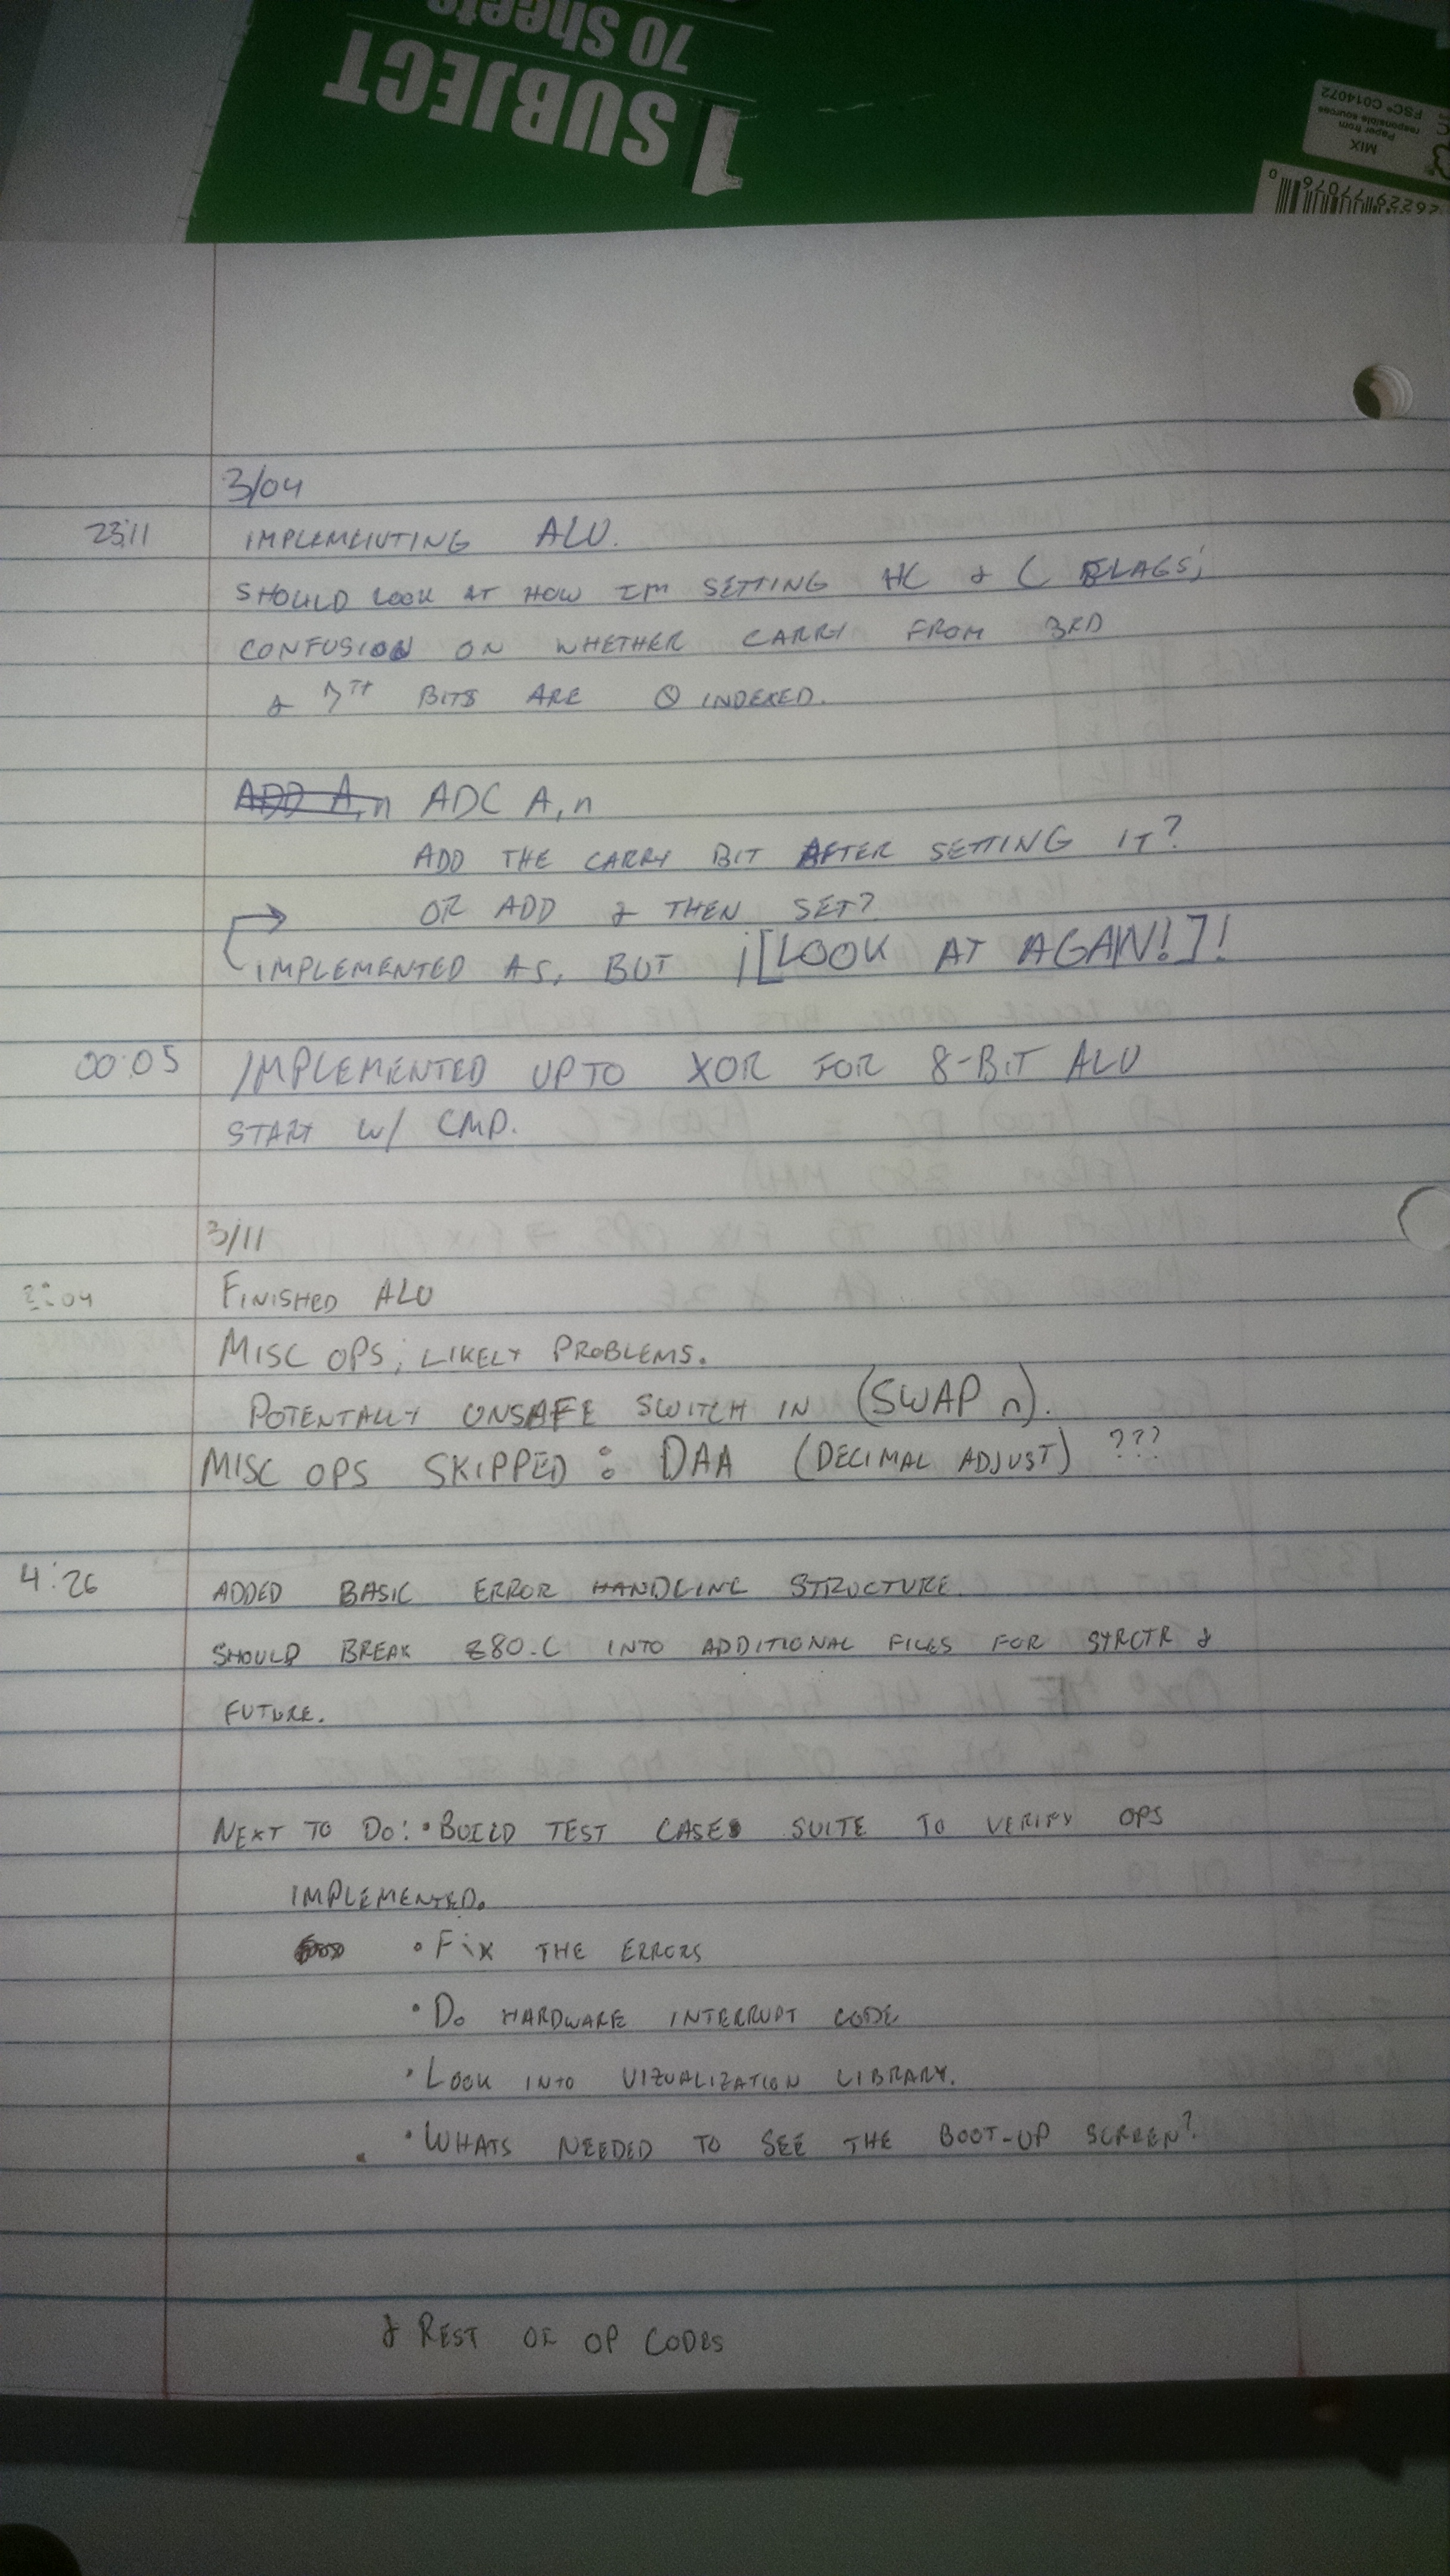 1 SUBJECT
70 Sheets
MIX
Paper from
responsible sources
FSC® C014072
3/04
23:11 IMPLEMENTING ALU.
SHOULD LOOK AT HOW IM SETTING HC & C FLAGS;
CONFUSION ON WHETHER CARRY FROM 3RD
& 7TH BITS ARE 0 INDEXED.
ADD A,n ADC A,n
ADD THE CARRY BIT AFTER SETTING IT?
OR ADD & THEN SET?
IMPLEMENTED AS, BUT ¡[LOOK AT AGAIN!]!
00:05 IMPLEMENTED UPTO XOR FOR 8-BIT ALU
START W/ CMP.
3/11
FINISHED ALU
MISC OPS; LIKELY PROBLEMS.
POTENTALLY UNSAFE SWITCH IN (SWAP n).
MISC OPS SKIPPED: DAA (DECIMAL ADJUST) ???
4:26 ADDED BASIC ERROR HANDLING STRUCTURE.
SHOULD BREAK Z80.C INTO ADDITIONAL FILES FOR STRCTR &
FUTURE.
NEXT TO DO: • BUILD TEST CASES SUITE TO VERIFY OPS
IMPLEMENTED.
• FIX THE ERRORS
• DO HARDWARE INTERRUPT CODE
• LOOK INTO VIZUALIZATION LIBRARY.
• WHATS NEEDED TO SEE THE BOOT-UP SCREEN?
& REST OF OP CODES